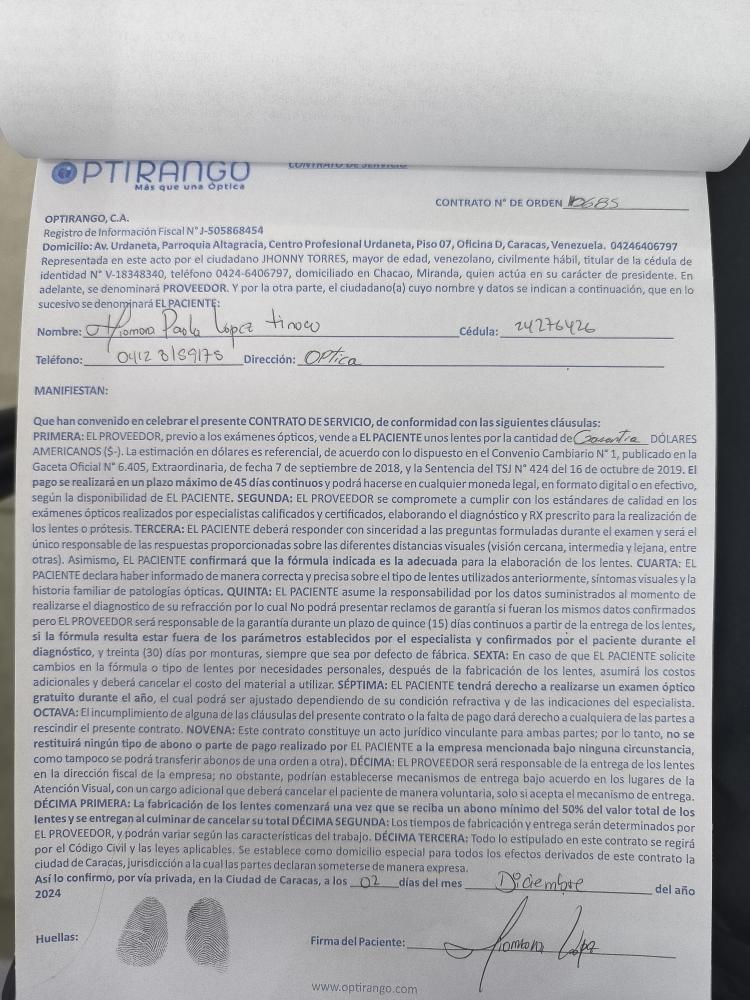 CONTRATO DE SERVICIO
OPTIRANGO
Más que una Óptica
CONTRATO N° DE ORDEN 10685
OPTIRANGO, C.A.
Registro de Información Fiscal N° J-505868454
Domicilio: Av. Urdaneta, Parroquia Altagracia, Centro Profesional Urdaneta, Piso 07, Oficina D, Caracas, Venezuela. 04246406797
Representada en este acto por el ciudadano JHONNY TORRES, mayor de edad, venezolano, civilmente hábil, titular de la cédula de
identidad N° V-18348340, teléfono 0424-6406797, domiciliado en Chacao, Miranda, quien actúa en su carácter de presidente. En
adelante, se denominará PROVEEDOR. Y por la otra parte, el ciudadano(a) cuyo nombre y datos se indican a continuación, que en lo
sucesivo se denominará EL PACIENTE:
Nombre: Paola López tinoco Cédula: 24276426
Teléfono: 0412 8159175 Dirección: Optica
MANIFIESTAN:
Que han convenido en celebrar el presente CONTRATO DE SERVICIO, de conformidad con las siguientes cláusulas:
PRIMERA: EL PROVEEDOR, previo a los exámenes ópticos, vende a EL PACIENTE unos lentes por la cantidad de Garantia DÓLARES
AMERICANOS ($-). La estimación en dólares es referencial, de acuerdo con lo dispuesto en el Convenio Cambiario N° 1, publicado en la
Gaceta Oficial N° 6.405, Extraordinaria, de fecha 7 de septiembre de 2018, y la Sentencia del TSJ N° 424 del 16 de octubre de 2019. El
pago se realizará en un plazo máximo de 45 días continuos y podrá hacerse en cualquier moneda legal, en formato digital o en efectivo,
según la disponibilidad de EL PACIENTE. SEGUNDA: EL PROVEEDOR se compromete a cumplir con los estándares de calidad en los
exámenes ópticos realizados por especialistas calificados y certificados, elaborando el diagnóstico y RX prescrito para la realización de
los lentes o prótesis. TERCERA: EL PACIENTE deberá responder con sinceridad a las preguntas formuladas durante el examen y será el
único responsable de las respuestas proporcionadas sobre las diferentes distancias visuales (visión cercana, intermedia y lejana, entre
otras). Asimismo, EL PACIENTE confirmará que la fórmula indicada es la adecuada para la elaboración de los lentes. CUARTA: EL
PACIENTE declara haber informado de manera correcta y precisa sobre el tipo de lentes utilizados anteriormente, síntomas visuales y la
historia familiar de patologías ópticas. QUINTA: EL PACIENTE asume la responsabilidad por los datos suministrados al momento de
realizarse el diagnostico de su refracción por lo cual No podrá presentar reclamos de garantía si fueran los mismos datos confirmados
pero EL PROVEEDOR será responsable de la garantía durante un plazo de quince (15) días continuos a partir de la entrega de los lentes,
si la fórmula resulta estar fuera de los parámetros establecidos por el especialista y confirmados por el paciente durante el
diagnóstico, y treinta (30) días por monturas, siempre que sea por defecto de fábrica. SEXTA: En caso de que EL PACIENTE solicite
cambios en la fórmula o tipo de lentes por necesidades personales, después de la fabricación de los lentes, asumirá los costos
adicionales y deberá cancelar el costo del material a utilizar. SÉPTIMA: EL PACIENTE tendrá derecho a realizarse un examen óptico
gratuito durante el año, el cual podrá ser ajustado dependiendo de su condición refractiva y de las indicaciones del especialista.
OCTAVA: El incumplimiento de alguna de las cláusulas del presente contrato o la falta de pago dará derecho a cualquiera de las partes a
rescindir el presente contrato. NOVENA: Este contrato constituye un acto jurídico vinculante para ambas partes; por lo tanto, no se
restituirá ningún tipo de abono o parte de pago realizado por EL PACIENTE a la empresa mencionada bajo ninguna circunstancia,
como tampoco se podrá transferir abonos de una orden a otra). DÉCIMA: EL PROVEEDOR será responsable de la entrega de los lentes
en la dirección fiscal de la empresa; no obstante, podrían establecerse mecanismos de entrega bajo acuerdo en los lugares de la
Atención Visual, con un cargo adicional que deberá cancelar el paciente de manera voluntaria, solo si acepta el mecanismo de entrega.
DÉCIMA PRIMERA: La fabricación de los lentes comenzará una vez que se reciba un abono mínimo del 50% del valor total de los
lentes y se entregan al culminar de cancelar su total DÉCIMA SEGUNDA: Los tiempos de fabricación y entrega serán determinados por
EL PROVEEDOR, y podrán variar según las características del trabajo. DÉCIMA TERCERA: Todo lo estipulado en este contrato se regirá
por el Código Civil y las leyes aplicables. Se establece como domicilio especial para todos los efectos derivados de este contrato la
ciudad de Caracas, jurisdicción a la cual las partes declaran someterse de manera expresa.
Así lo confirmo, por vía privada, en la Ciudad de Caracas, a los 02 días del mes Diciembre del año
2024
Huellas:
Firma del Paciente: López
www.optirango.com